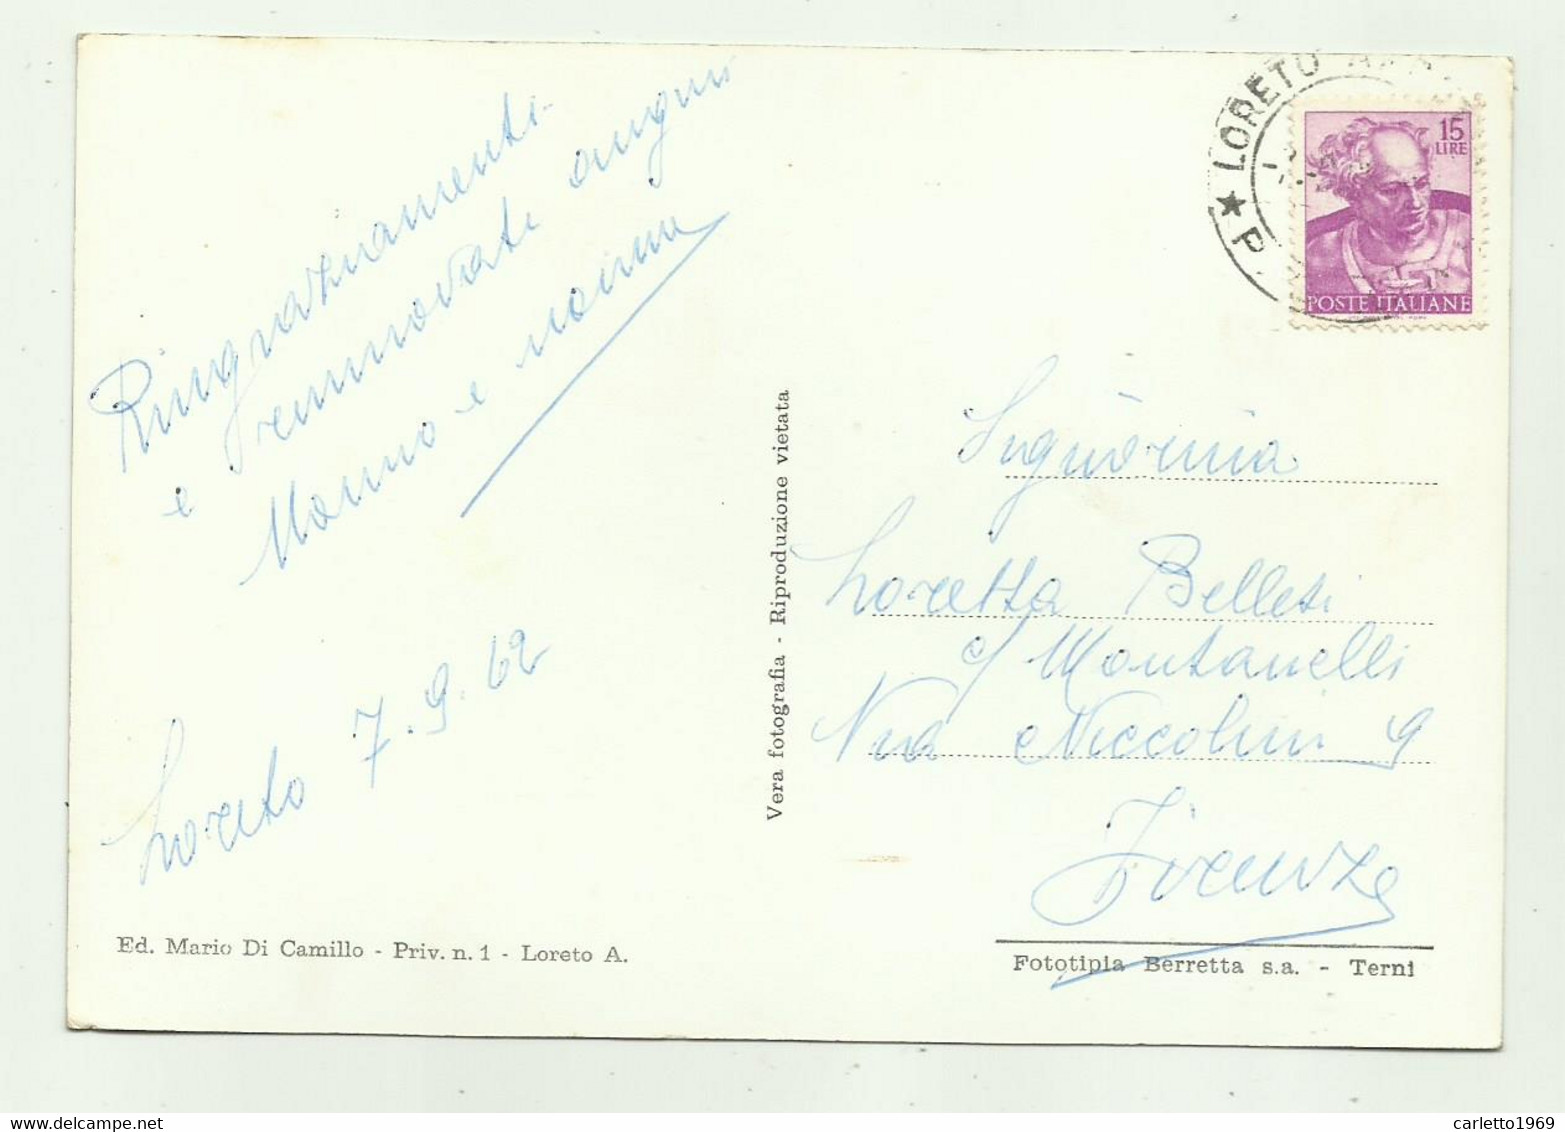 Ringraziamenti
e rinnovati auguri
Nonno e nonna
Loreto 7.9.62
Ed. Mario Di Camillo - Priv. n. 1 - Loreto A.
Vera fotografia - Riproduzione vietata
★ LORETO
P
15
LIRE
POSTE ITALIANE
Signorina
Loretta Bellesi
c/ Montanelli
Via Niccolini 9
Firenze
Fototipia Berretta s.a. - Terni
carletto1969